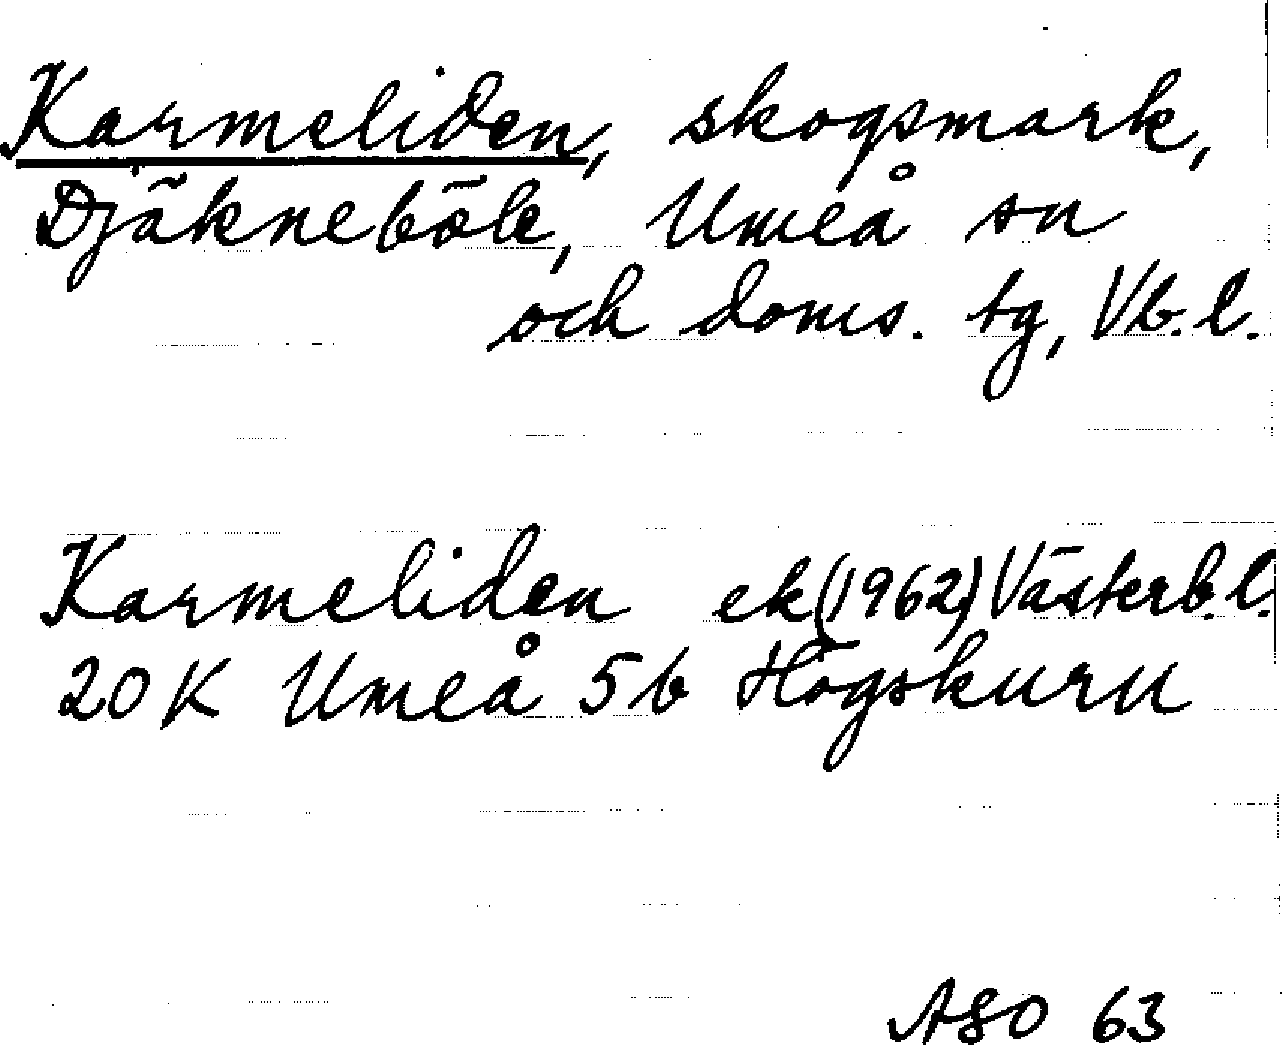 Karmeliden, skogsmark,
Djäkneböle, Umeå sn
och doms. tg, Vb. l.
Karmeliden ek (1962) Västerb. l.
20 K Umeå 5 b Högskuru
ASO 63